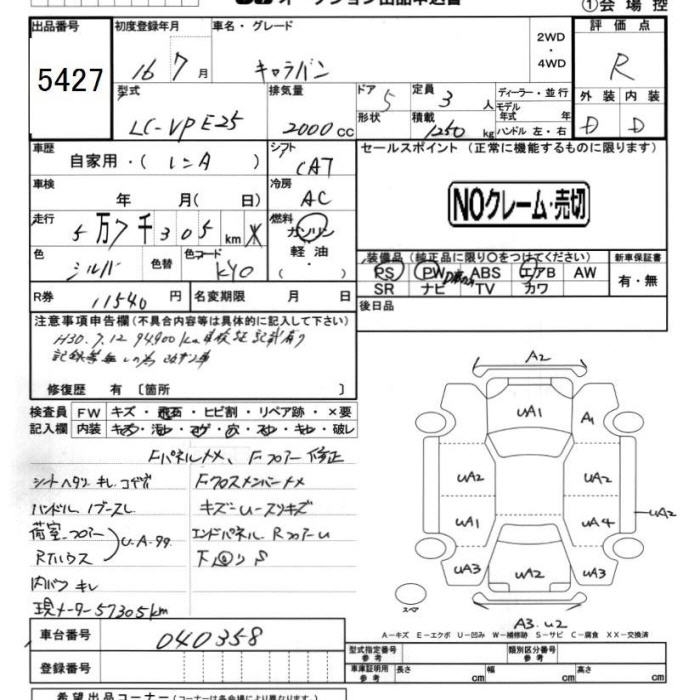 ①会場控
出品番号 初度登録年月 車名・グレード 2WD ・ 4WD 評価点
5427 16年 7月 キャラバン R
型式 排気量 ドア 5 定員 3人 ディーラー・並行 外装 内装
LC-VPE25 2000cc 形状 積載 1250kg モデル年式 年 ハンドル 左・右 D D
車歴 自家用・(レンタ) シフト CAT セールスポイント(正常に機能するものに限ります)
車検 年 月(日) 冷房 AC
NOクレーム・売切
走行 5万7千305km 燃料 ガソリン 軽油
色 シルバー 色替 色コード KY0
装備品(純正品に限り○をつけてください) 新車保証書
PS PW ABS エアB AW 有・無
SR ナビ TV カワ
R券 11540円 名変期限 月 日 後日品
注意事項申告欄(不具合内容等は具体的に記入して下さい)
H30.7.12 94,900km 車検証記載有り
記録等無しの為 改ザン車
修復歴 有 〔箇所 〕
検査員 FW キズ・飛石・ヒビ割・リペア跡・×要
記入欄 内装
Fパネルナメ、Fフロアー修正
シートヘタリ キレ コゲ穴 Fクロスメンバーナメ
ハンドル
荷室フロアー エンドパネル Rフロアー U
Rタイハウス U・A・99. 下回り S
内バリ キレ
現メーター57305km
A2
UA1 A1
UA2 UA2
UA1 UA4 UA2
UA3 UA2 UA3
スペア A3.U2
A－キズ E－エクボ U－凹み W－補修跡 S－サビ C－腐食 XX－交換済
車台番号 040358
型式指定番号 参考 類別区分番号 参考
登録番号 車庫証明用 参考 長さ cm 幅 cm 高さ cm
希望出品コーナー(コーナーは各会場により異なります。)